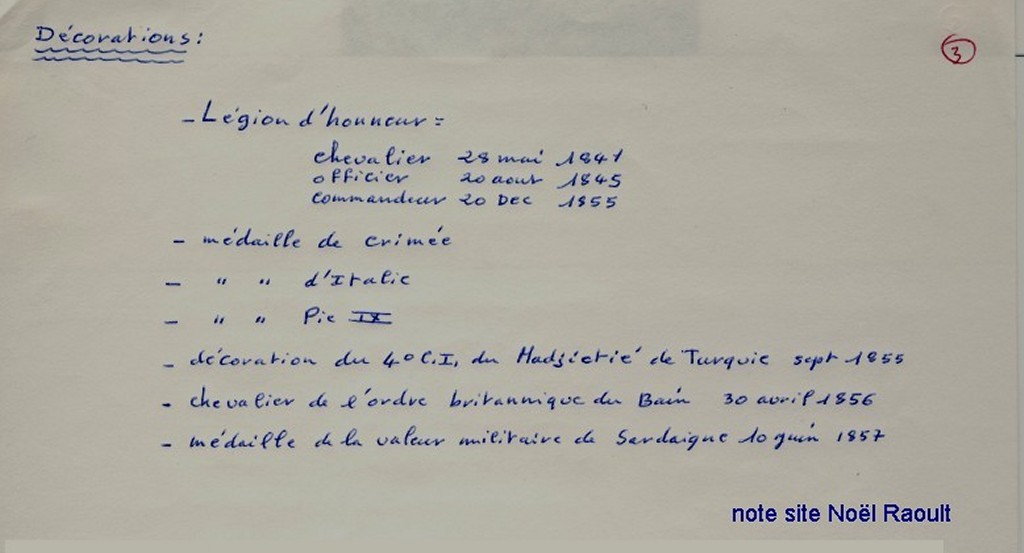 Décorations:
3
- Légion d'honneur =
chevalier 28 mai 1841
officier 20 aout 1845
commandeur 20 Dec 1855
- médaille de crimée
- " " d'Italie
- " " Pie IX
- décoration du 4° C.I. du Madjietié de Turquie sept 1855
- chevalier de l'ordre britannique du Bain 30 avril 1856
- médaille de la valeur militaire de Sardaigne 10 guin 1857
note site Noël Raoult